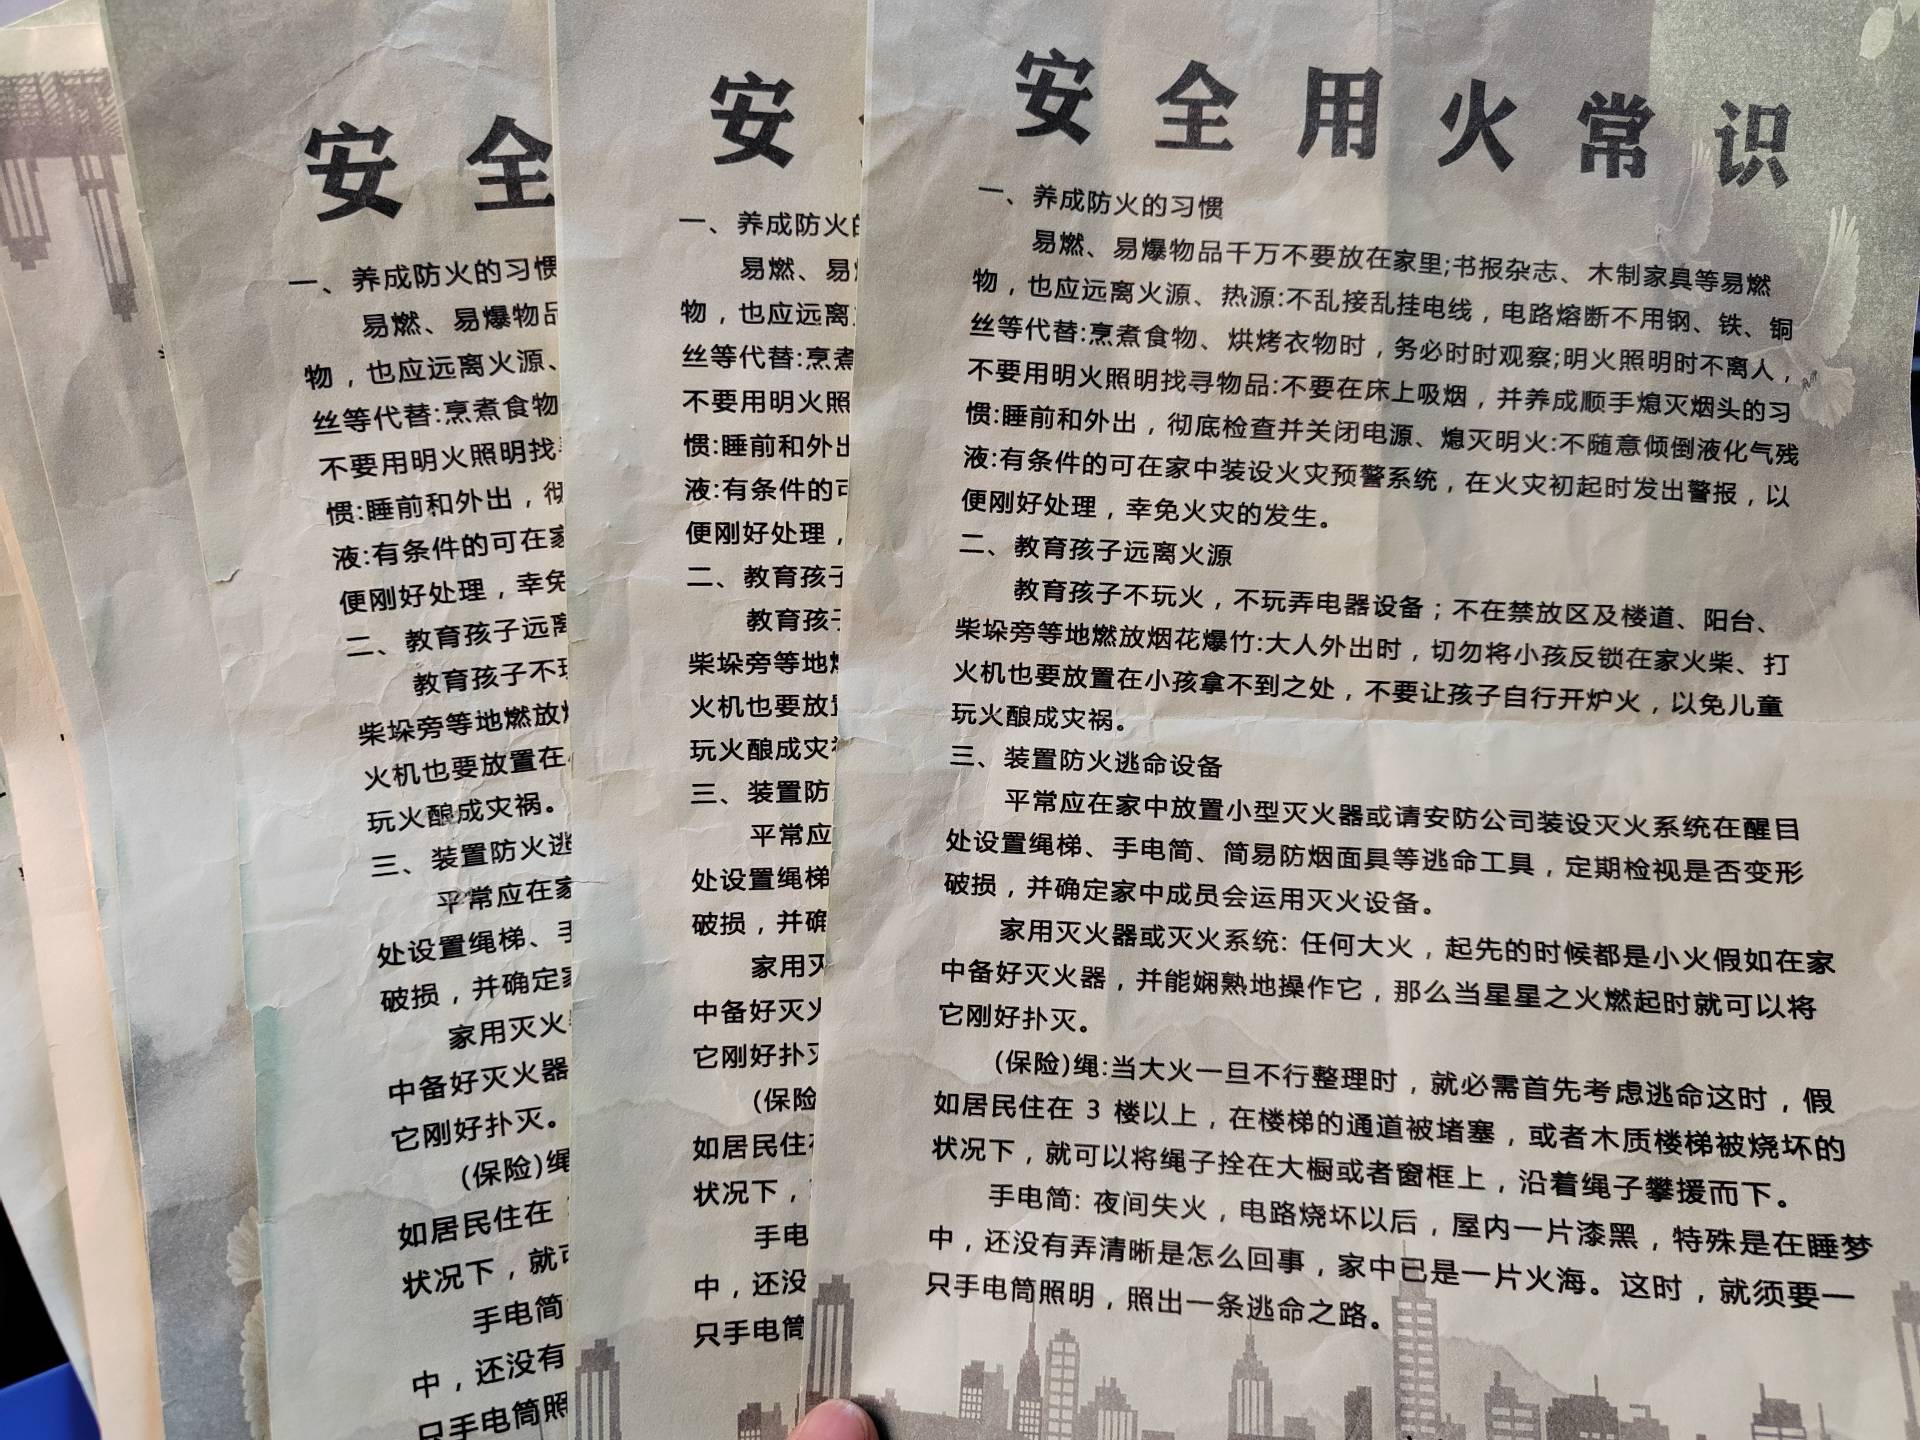 安全用火常识
一、养成防火的习惯
易燃、易爆物品千万不要放在家里;书报杂志、木制家具等易燃
物，也应远离火源、热源:不乱接乱挂电线，电路熔断不用钢、铁、铜
丝等代替:烹煮食物、烘烤衣物时，务必时时观察;明火照明时不离人，
不要用明火照明找寻物品:不要在床上吸烟，并养成顺手熄灭烟头的习
惯:睡前和外出，彻底检查并关闭电源、熄灭明火:不随意倾倒液化气残
液:有条件的可在家中装设火灾预警系统，在火灾初起时发出警报，以
便刚好处理，幸免火灾的发生。
二、教育孩子远离火源
教育孩子不玩火，不玩弄电器设备；不在禁放区及楼道、阳台、
柴垛旁等地燃放烟花爆竹:大人外出时，切勿将小孩反锁在家火柴、打
火机也要放置在小孩拿不到之处，不要让孩子自行开炉火，以免儿童
玩火酿成灾祸。
三、装置防火逃命设备
平常应在家中放置小型灭火器或请安防公司装设灭火系统在醒目
处设置绳梯、手电简、简易防烟面具等逃命工具，定期检视是否变形
破损，并确定家中成员会运用灭火设备。
家用灭火器或灭火系统: 任何大火，起先的时候都是小火假如在家
中备好灭火器，并能娴熟地操作它，那么当星星之火燃起时就可以将
它刚好扑灭。
(保险)绳:当大火一旦不行整理时，就必需首先考虑逃命这时，假
如居民住在 3 楼以上，在楼梯的通道被堵塞，或者木质楼梯被烧坏的
状况下，就可以将绳子拴在大橱或者窗框上，沿着绳子攀援而下。
手电简: 夜间失火，电路烧坏以后，屋内一片漆黑，特殊是在睡梦
中，还没有弄清晰是怎么回事，家中已是一片火海。这时，就须要一
只手电筒照明，照出一条逃命之路。
安
一、养成防火的
易燃、易
物，也应远离
丝等代替:烹煮
不要用明火照
惯:睡前和外出
液:有条件的可
便刚好处理，
二、教育孩子
教育孩子
柴垛旁等地
火机也要放
玩火酿成灾
三、装置防
平常应
处设置绳梯
破损，并确
家用灭
中备好灭火
它刚好扑灭
(保险
如居民住在
状况下，
手电
中，还没
只手电筒
安全
一、养成防火的习惯
易燃、易爆物品
物，也应远离火源、
丝等代替:烹煮食物
不要用明火照明找
惯:睡前和外出，彻
液:有条件的可在家
便刚好处理，幸免
二、教育孩子远离
教育孩子不玩
柴垛旁等地燃放
火机也要放置在
玩火酿成灾祸。
三、装置防火逃
平常应在家
处设置绳梯、手
破损，并确定家
家用灭火
中备好灭火器
它刚好扑灭。
(保险)绳
如居民住在
状况下，就可
手电简
中，还没有
只手电筒照